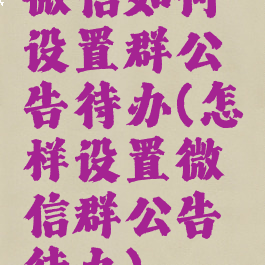 微信如何
设置群公
告待办(怎
样设置微
信群公告
待办)